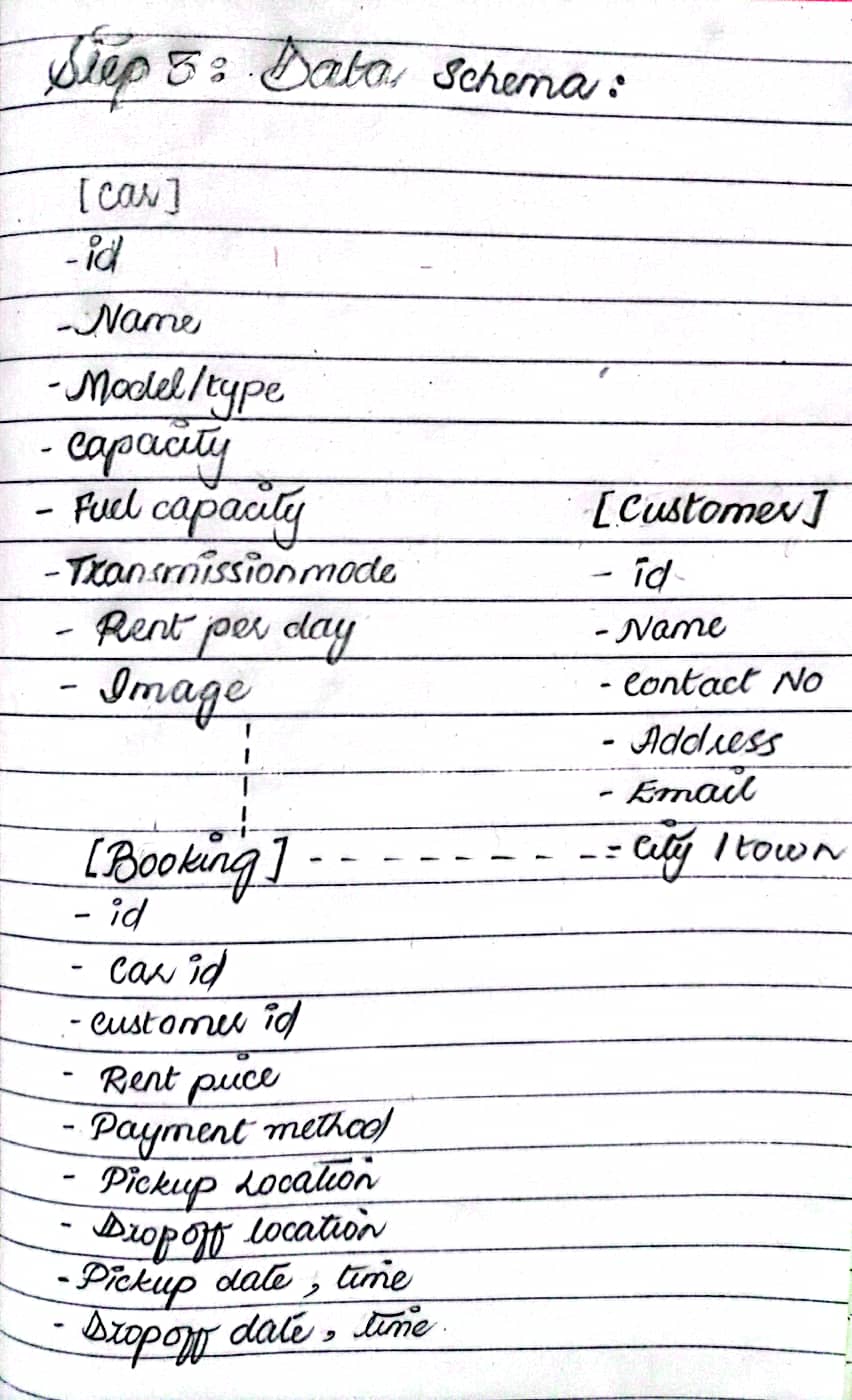 Step 3: Data Schema:
[Car]
- id
- Name
- Model/type
- capacity
- Fuel capacity
- Transmission mode
- Rent per day
- Image
[Customer]
- id
- Name
- Contact No
- Address
- Email
- City / town
[Booking]
- id
- Car id
- customer id
- Rent price
- Payment method
- Pickup Location
- Dropoff location
- Pickup date, time
- Dropoff date, time.